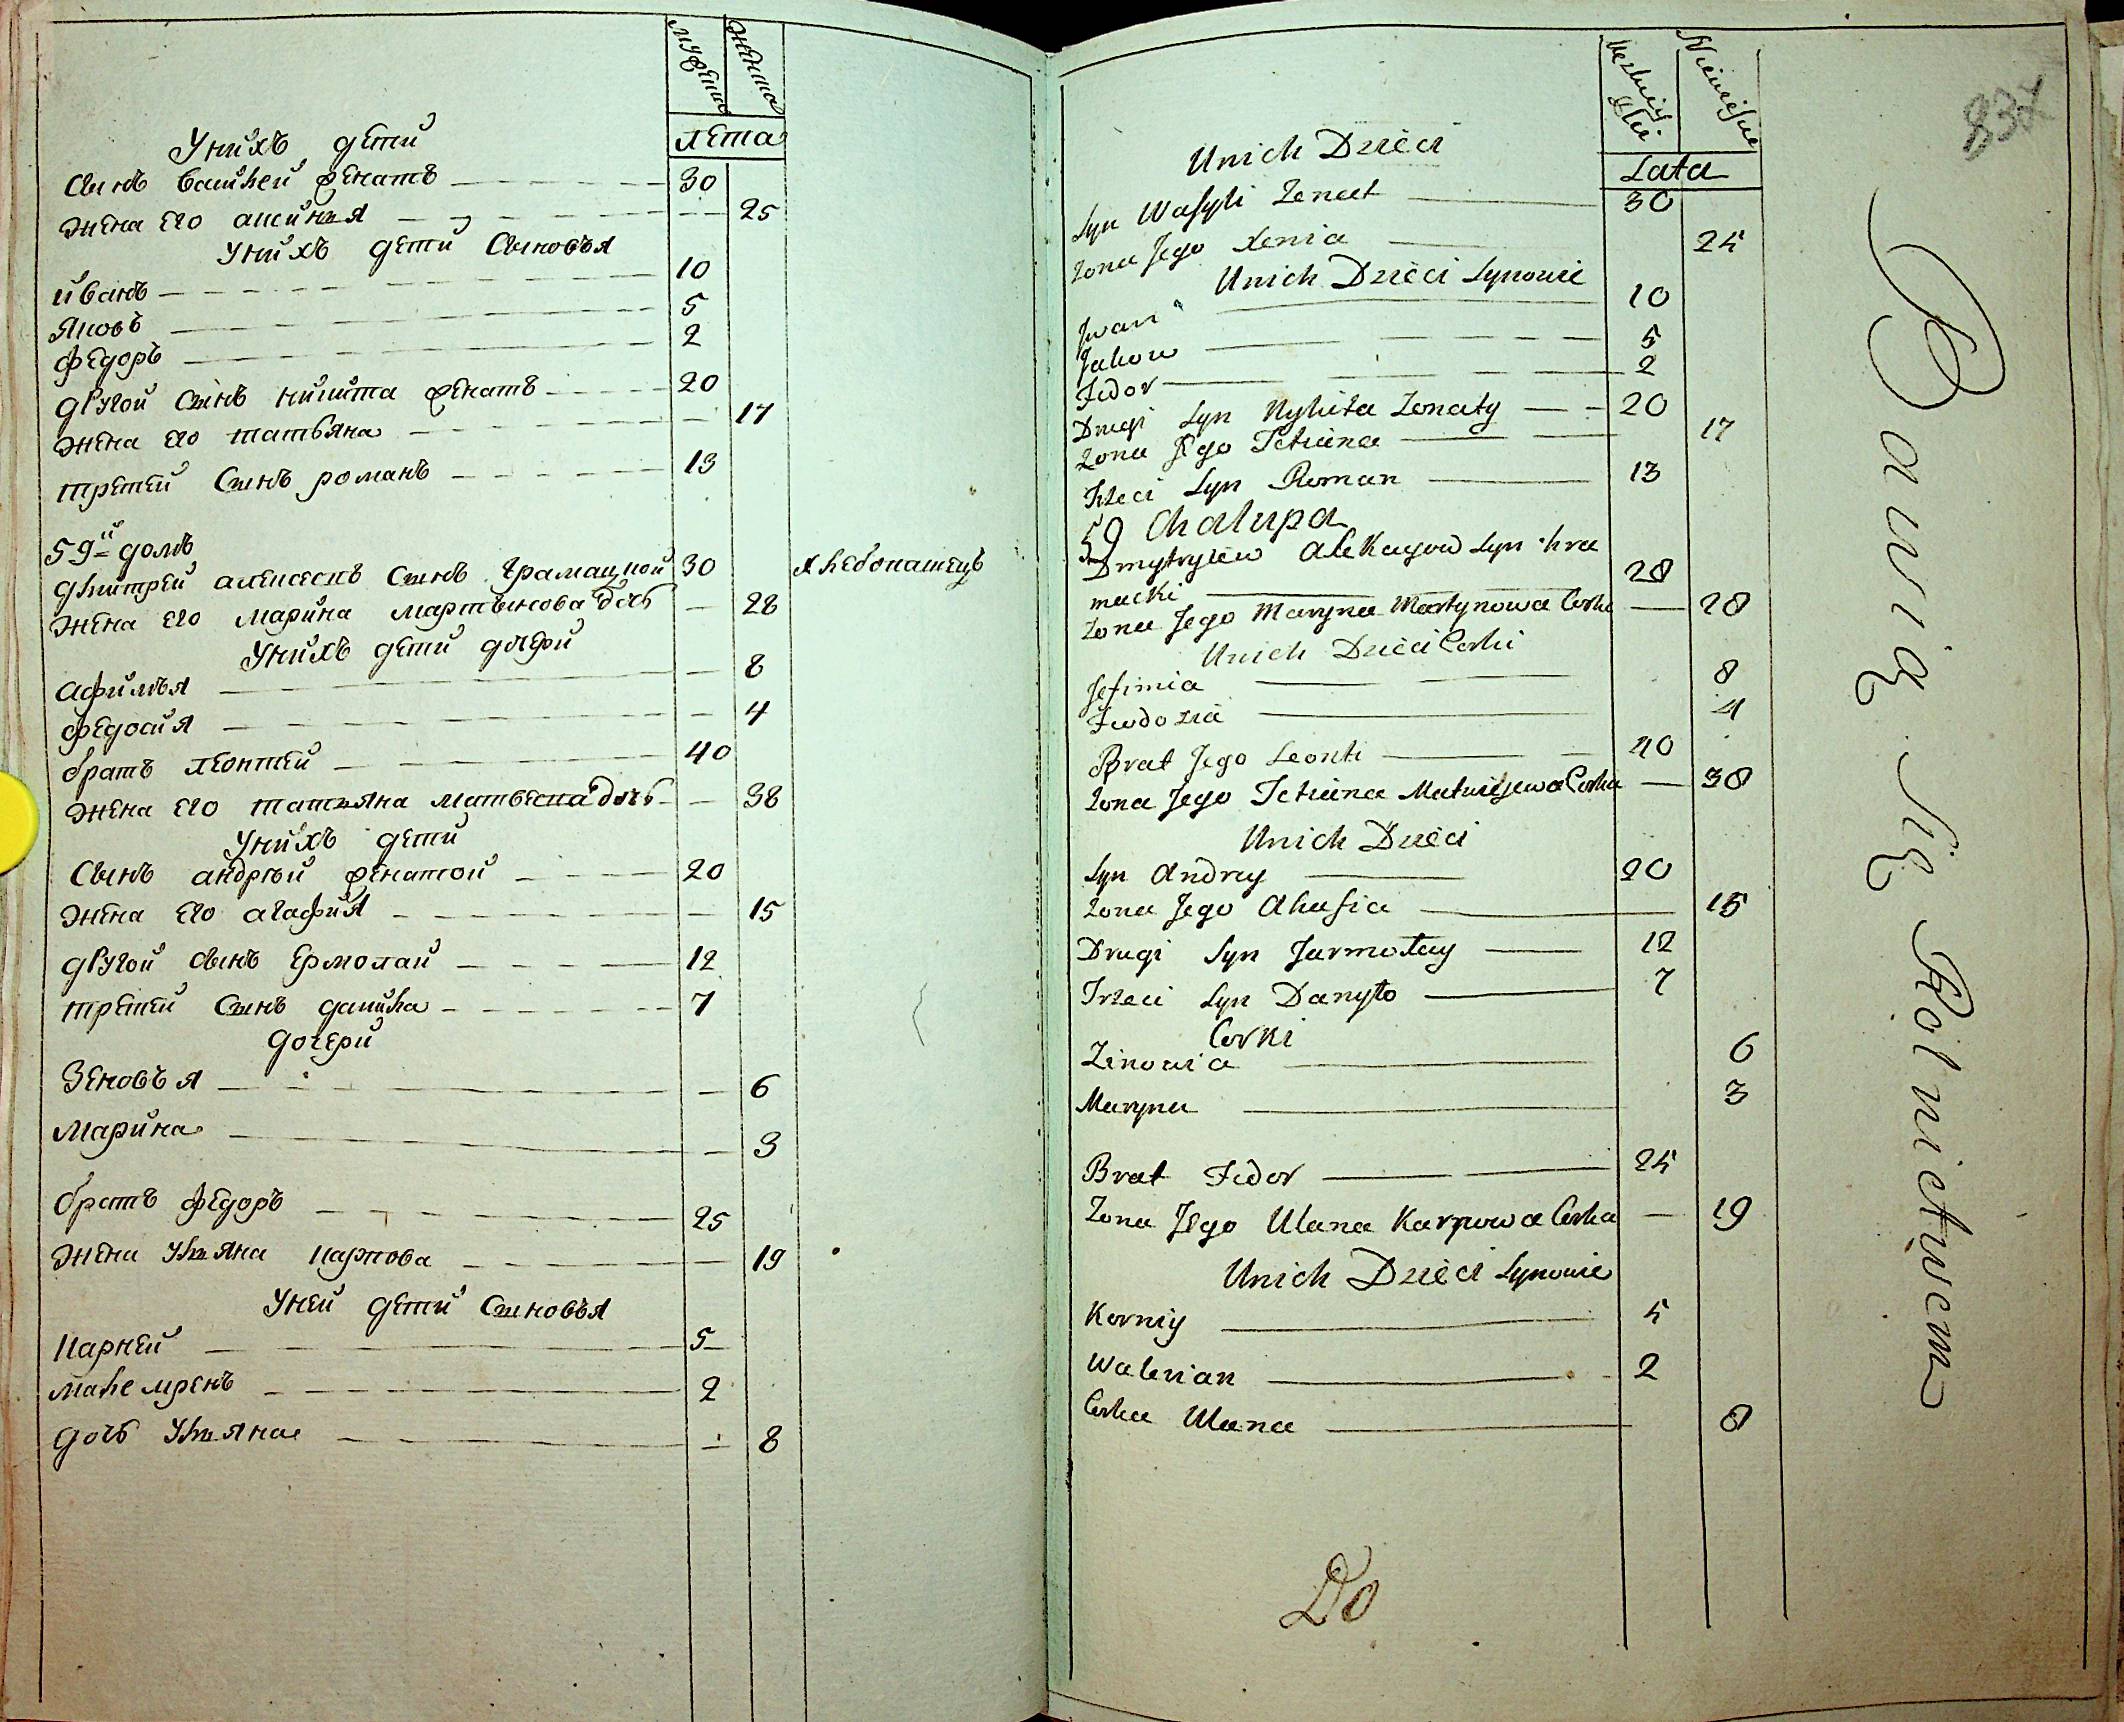 мужеска
женска
лета
У нихъ дети
сынъ василей женатъ 30
жена его аксинья 25
У нихъ дети сыновья
иванъ 10
яковъ 5
федоръ 2
другой сынъ никита женатъ 20
жена его татьяна 17
третей сынъ романъ 13
59й домъ
дмитрей алексеевъ сынъ 30 хлебопашецъ
жена его марина мартынова дочь 28
У нихъ дети дочери
афимья 8
федосия 4
братъ леонтей 40
жена его татьяна матвеева дочь 38
У нихъ дети
сынъ андрей женатой 20
жена его агафия 15
другой сынъ ермолай 12
третей сынъ данила 7
дочери
Зеновья 6
марина 3
братъ федоръ 25
жена ульяна карпова 19
У ней дети сыновья
карней 5
2
дочь ульяна 8
83
Męzkiey
Niewiescie
Lata
Unich Dzieci
Syn Wasyli Zonat 30
Zona Jego Xenia 25
Unich Dzieci Synowie
Jwan 10
Jakow 5
Fedor 2
Drugi Syn Nykita Zonaty 20
Zona Jego Tetiana 17
Trzeci Syn Roman 13
59 Chalupa
Dmytry Syn hra
macki 28
Zona Jego Maryna Martynowa Corka 28
Unich Dzieci Corki
Jefimia 8
Fewdozia 4
Brat Jego Leonti 40
Zona Jego Tetiana Matwiejewa Corka 38
Unich Dzieci
Syn Andrey 20
Zona Jego Ahafia 15
Drugi Syn Jarmołay 12
Trzeci Syn Danyło 7
Corki
Zinowia 6
Maryna 3
Brat Fedor 25
Zona Jego Ulana Karpowa Corka 19
Unich Dzieci Synowie
Korniy 5
Walerian 2
Corka Ulana 8
Do
Bawią Się Rolnictwem